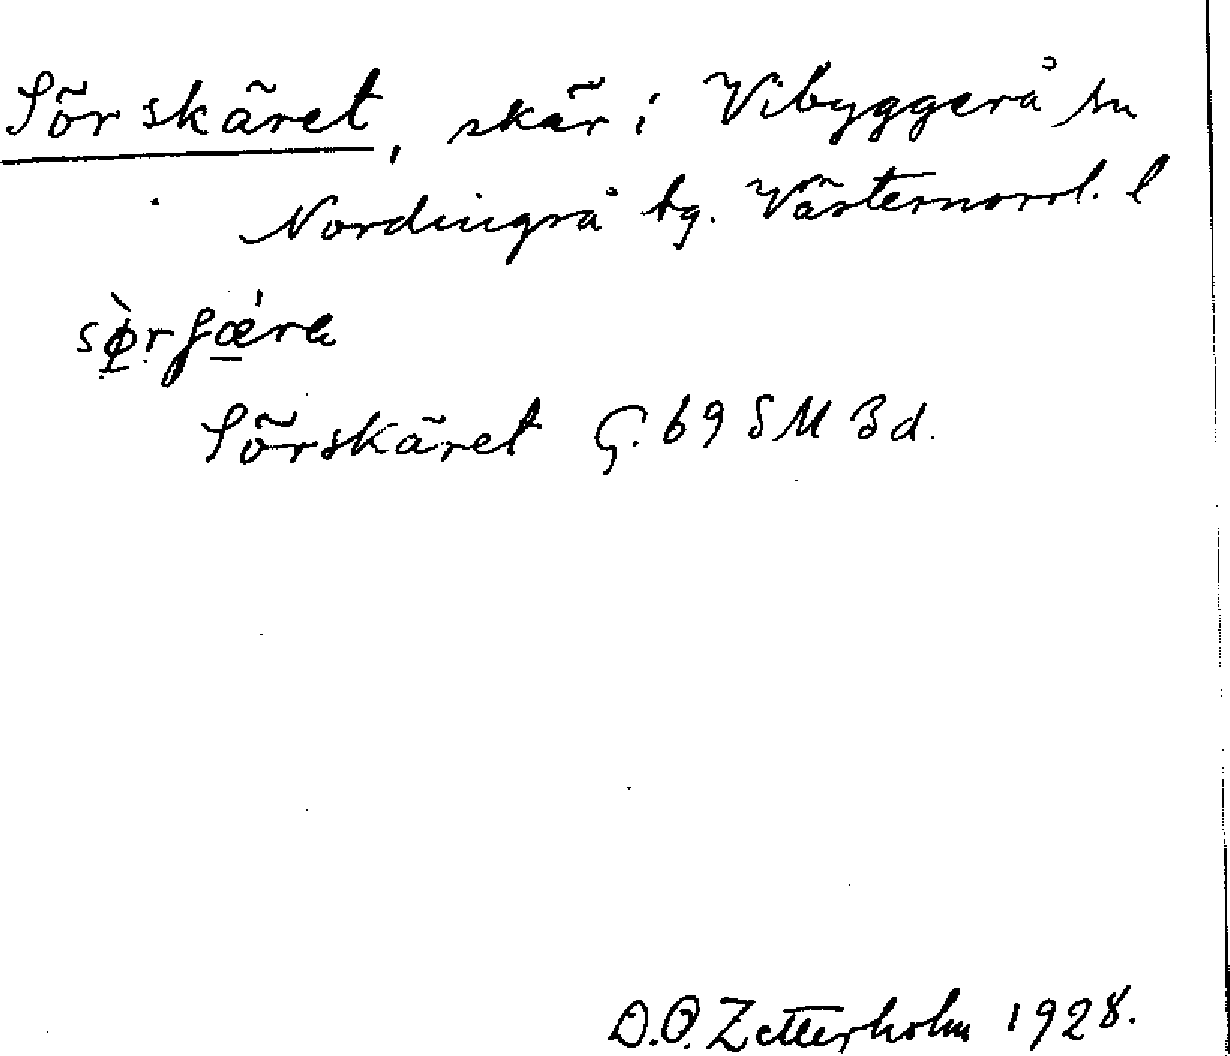 Sörskäret, skär i Vibyggerå sn
Nordingrå tg. Västernorrl. l
sø̀rʃǽra
Sörskäret G. 69 SM 3d.
D.O. Zetterholm 1928.